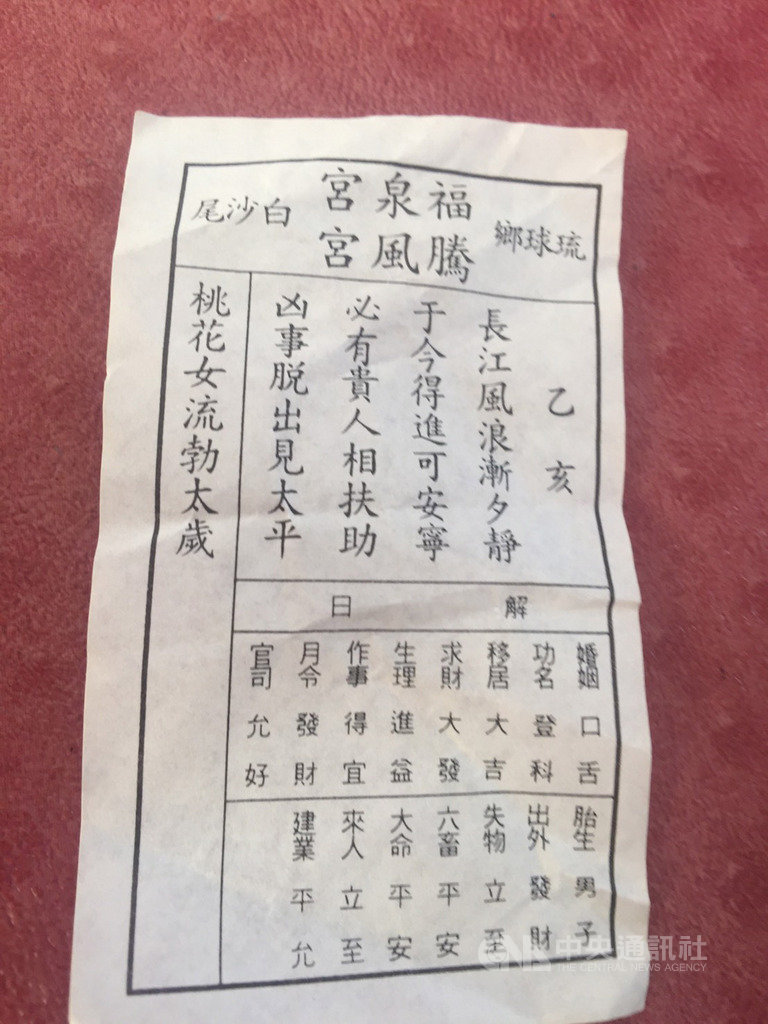 琉球鄉
福泉宮
騰風宮
白沙尾
乙亥
長江風浪漸夕靜
于今得進可安寧
必有貴人相扶助
凶事脫出見太平
桃花女流勃太歲
解日
婚姻口舌
功名登科
移居大吉
求財大發
生理進益
作事得宜
月令發財
官司允好
胎生男子
出外發財
失物立至
六畜平安
大命平安
來人立至
建業平允
中央通訊社
THE CENTRAL NEWS AGENCY